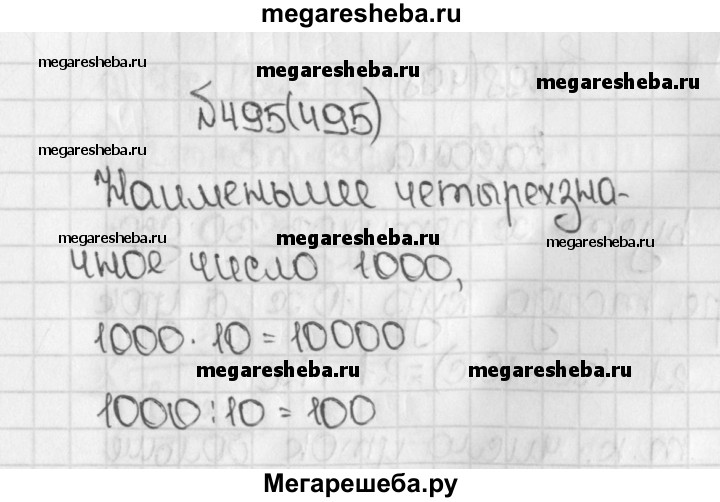 megaresheba.ru
megaresheba.ru megaresheba.ru megaresheba.ru
№495(495)
megaresheba.ru
Наименьшее четырехзна-
megaresheba.ru megaresheba.ru megaresheba.ru
чное число 1000,
1000·10=10000
megaresheba.ru megaresheba.ru
1000:10=100
Мегарешеба.ру